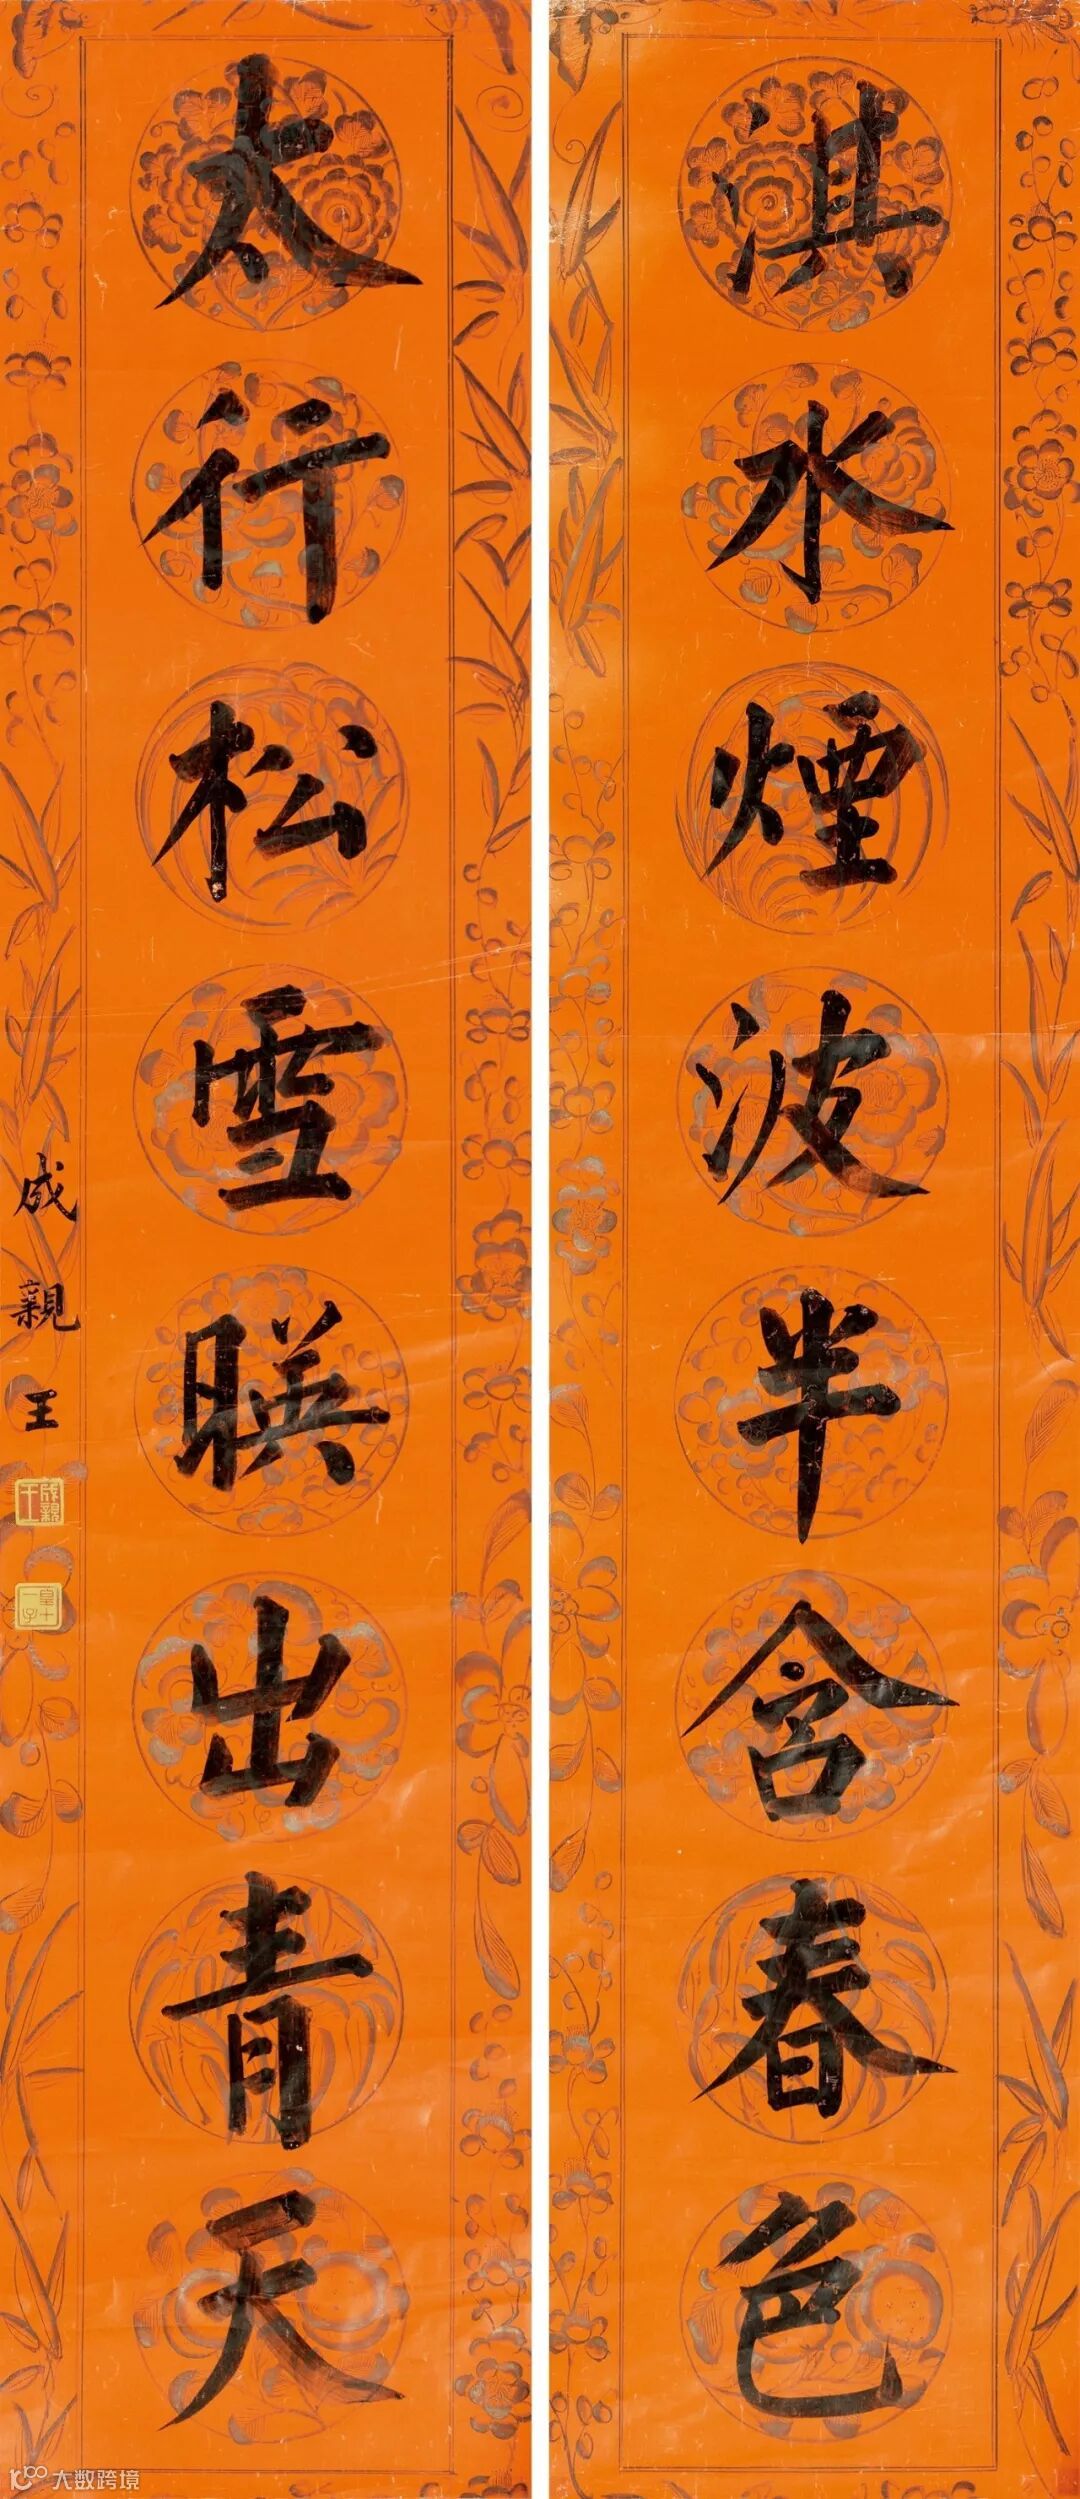 淇水煙波半含春色
太行松雪暎出青天
成親王
成親王
皇十一子
大数跨境